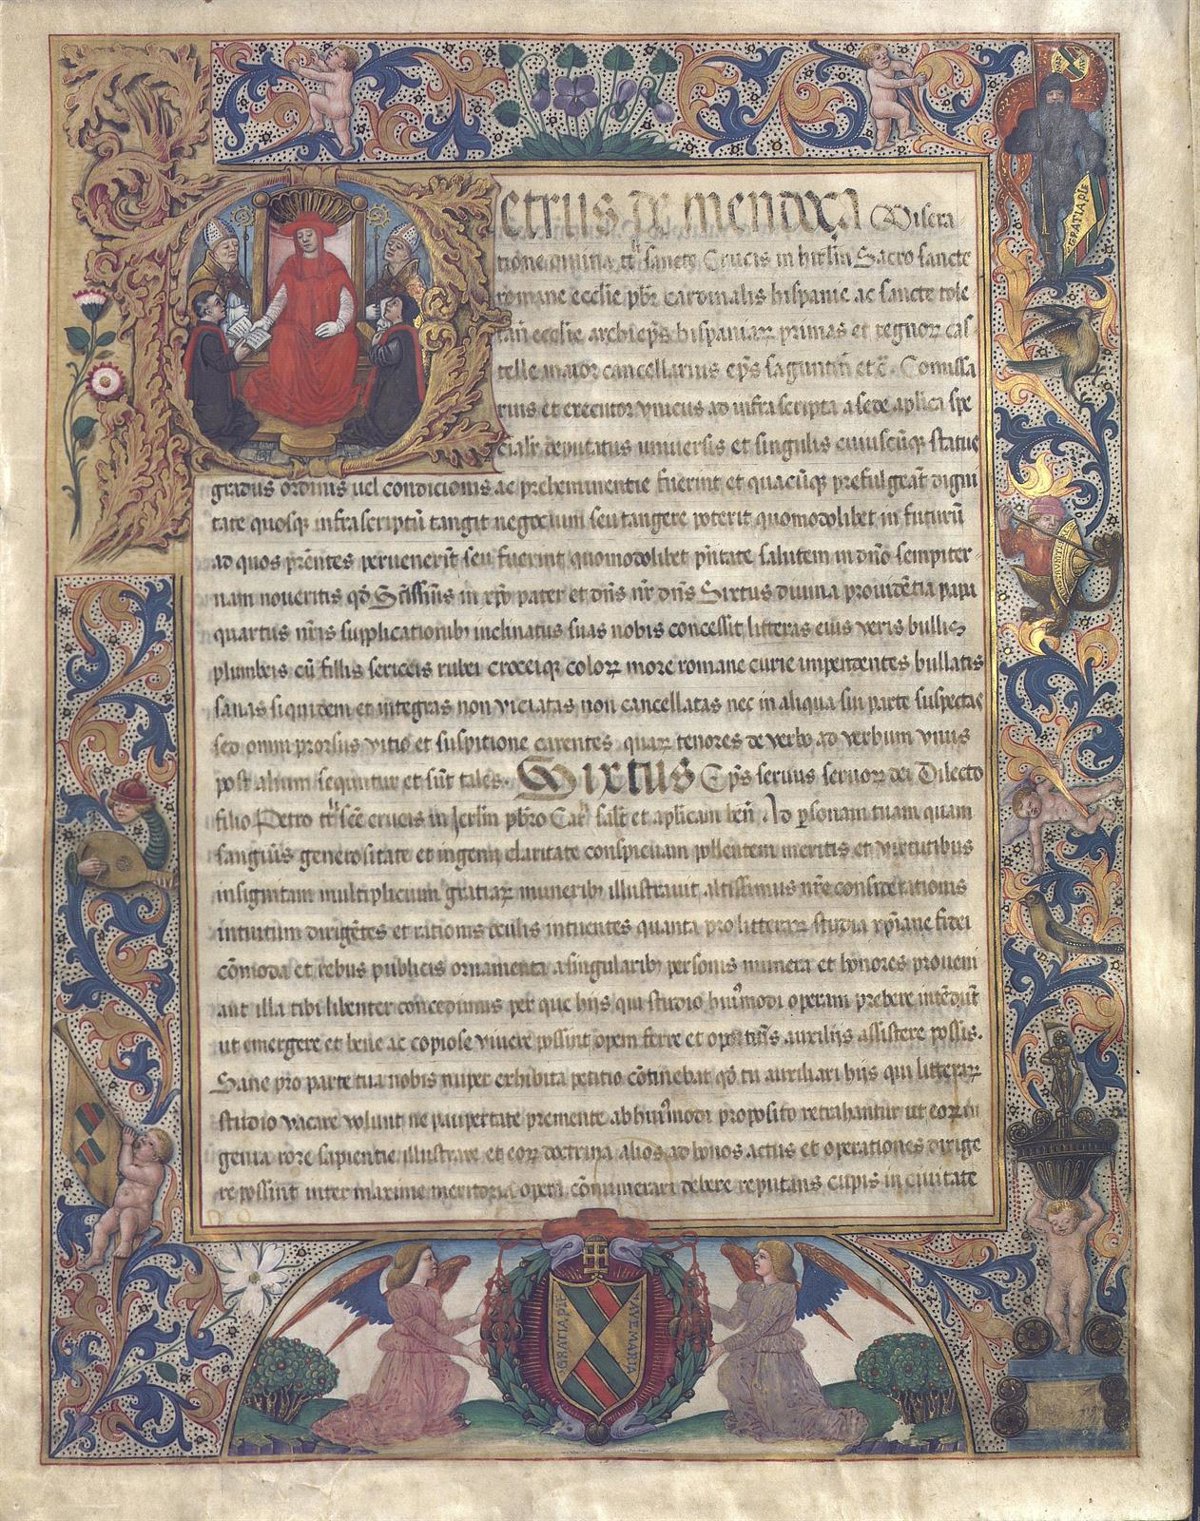 Petrus de mendoça Misera
tione diuina tt̄ sancte Crucis in hierlm̄ Sacro sancte
romane ecclie pbr̄ Cardinalis hispanie ac sancte tole
tan̄ ecclie archiep̄s hispaniaꝝ primas et regnoꝝ cas
telle maior cancellarius ep̄s saguntin̄ etc̄. Comissa
rius et executor vnicus ad infra scripta a sede aplica spe
cialr̄ deputatus vniuersis et singulis cuiuscūqꝫ status
gradus ordinis uel condicionis ac preheminentie fuerint et quacūqꝫ prefulgeāt digni
tate quosqꝫ infrascriptū tangit negocium seu tangere poterit quomodolibet in futurū
ad quos pn̄tes peruenerīt seu fuerint quomodolibet pn̄tate salutem in dn̄o sempiter
nam noueritis qd̄ Sc̄issim̄s in xp̄o pater et dn̄s nr̄ dn̄s Sixtus diuina prouidētia papa
quartus nr̄is supplicationibꝫ inclinatus suas nobis concessit litteras eius veris bullis
plumbeis cū fillis sericeis rubei croceiqꝫ coloꝝ more romane curie impendentes bullatis
sanas siquidem et integras non viciatas non cancellatas nec in aliqua sui parte suspectas
sed omni prorsus vitio et suspitione carentes quaꝝ tenores de verbo ad verbum vnius
post alium sequntur et sūt tales. Sixtus Ep̄s seruus seruoꝝ dei Dilecto
filio Petro tt̄ sc̄e crucis in Jerlm̄ pbr̄o Car̄ salt̄ et aplicam ben̄. Ad personam tuam quam
sanguīs generositate et ingenij claritate conspicuam pollentem meritis et virtutibus
insignitam multiplicium gratiaꝝ muneribꝫ illustrauit altissimus nr̄e considerationis
intuitum dirigētes et rationis oculis intuentes quanta pro litteraꝝ studia xp̄iane fidei
cōmoda et rebus publicis ornamenta a singularibꝫ personis munera et honores proueni
ant illa tibi libenter concedimus per que hijs qui studio huiꝰmodi operam prebere intēdūt
ut emergere et bene ac copiose viuere possint opem ferre et oportunis auxilijs assistere possis.
Sane pro parte tua nobis nuper exhibita petitio cōtinebat qd̄ tu auxiliari hijs qui litteraꝝ
studio vacare volunt ne paupertate premente ab huiꝰmodi proposito retrahantur ut eoꝝ in
genia rore sapientie illustrare et eoꝝ doctrina alios ad bonos actus et operationes dirige
re possint inter maxime meritoria opera cōnumerari debere reputans cupis in ciuitate
GRATIA PLE
GRATIA PLE
AVE MARIA